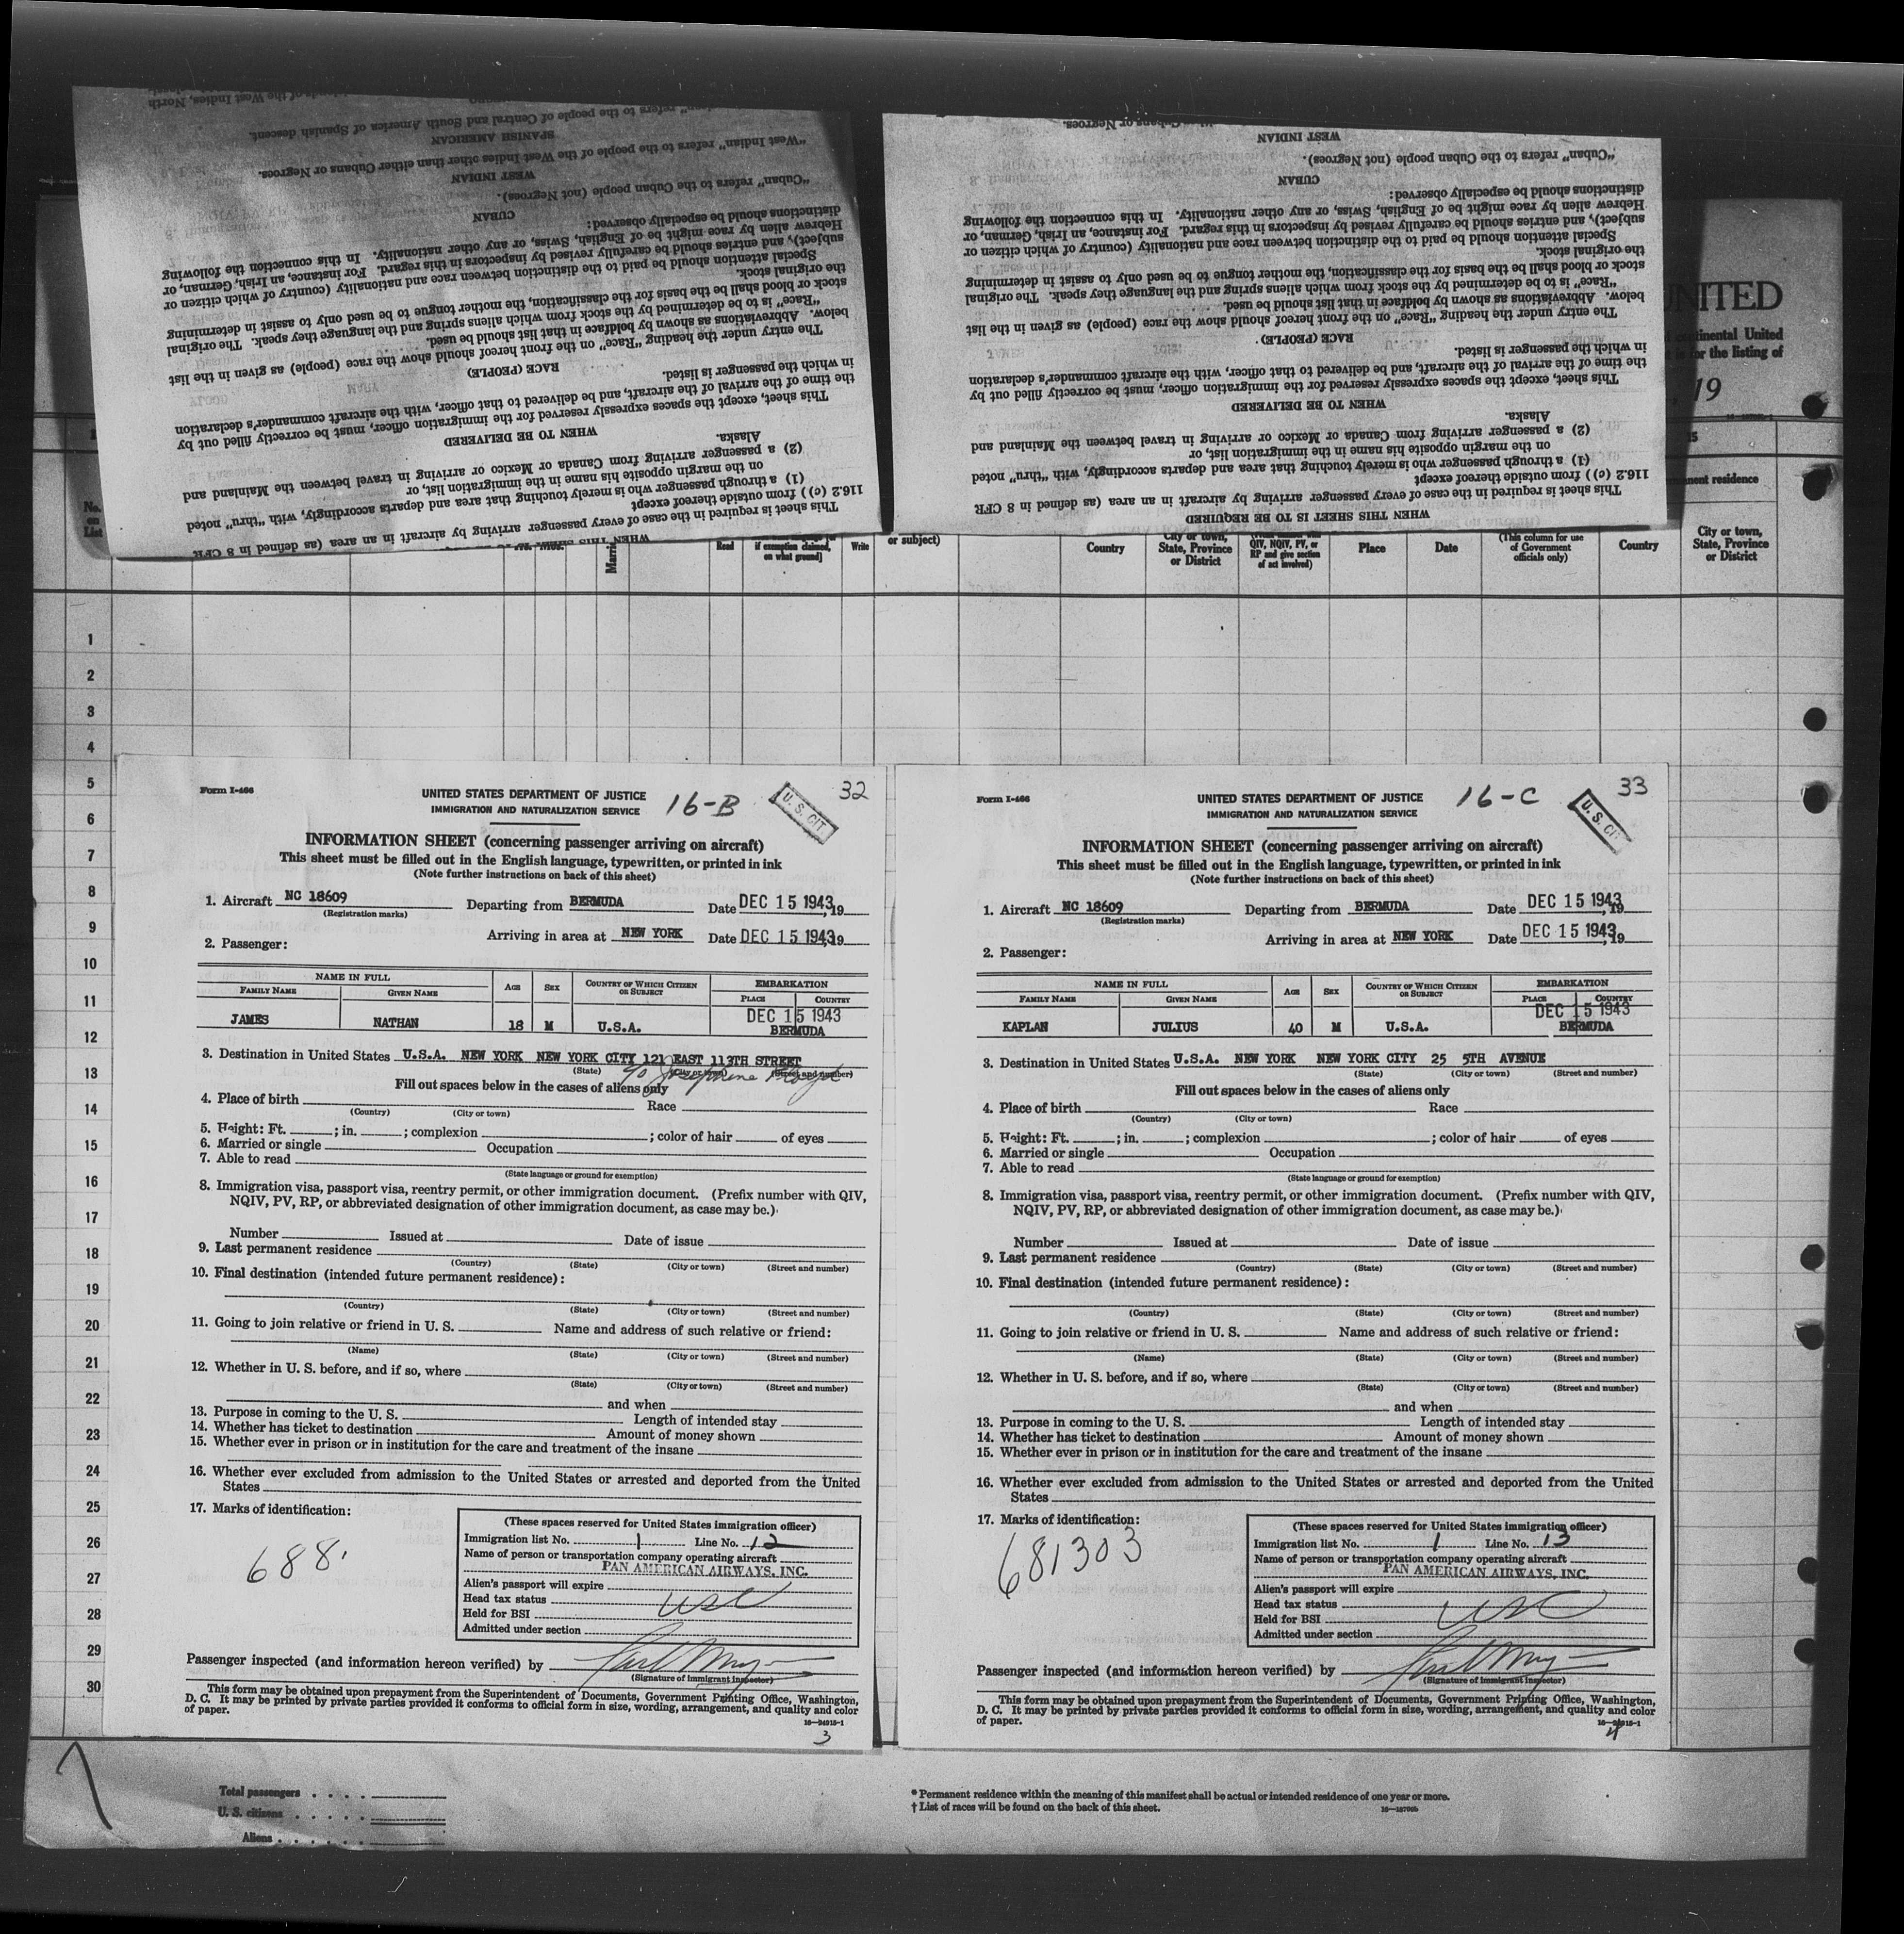 of the West Indies, North
refers to the people of Central and South America of Spanish descent.
SPANISH AMERICAN
"West Indian" refers to the people of the West Indies other than either Cubans or Negroes.
WEST INDIAN
"Cuban" refers to the Cuban people (not Negroes).
CUBAN
distinctions should be especially observed:
Hebrew alien by race might be of English, Swiss, or any other nationality. In this connection the following
subject), and entries should be carefully revised by inspectors in this regard. For instance, an Irish, German, or
Special attention should be paid to the distinction between race and nationality (country of which citizen or
the original stock.
stock or blood shall be the basis for the classification, the mother tongue to be used only to assist in determining
"Race" is to be determined by the stock from which aliens spring and the language they speak. The original
below. Abbreviations as shown by boldface in that list should be used.
The entry under the heading "Race" on the front hereof should show the race (people) as given in the list
RACE (PEOPLE)
in which the passenger is listed.
the time of the arrival of the aircraft, and be delivered to that officer, with the aircraft commander's declaration
This sheet, except the spaces expressly reserved for the immigration officer, must be correctly filled out by
WHEN TO BE DELIVERED
Alaska.
(2) a passenger arriving from Canada or Mexico or arriving in travel between the Mainland and
on the margin opposite his name in the immigration list, or
(1) a through passenger who is merely touching that area and departs accordingly, with "thru" noted
116.2 (c)) from outside thereof except
This sheet is required in the case of every passenger arriving by aircraft in an area (as defined in 8 CFR
Cubans or Negroes.
WEST INDIAN
"Cuban" refers to the Cuban people (not Negroes).
CUBAN
distinctions should be especially observed:
Hebrew alien by race might be of English, Swiss, or any other nationality. In this connection the following
subject), and entries should be carefully revised by inspectors in this regard. For instance, an Irish, German, or
Special attention should be paid to the distinction between race and nationality (country of which citizen or
the original stock.
stock or blood shall be the basis for the classification, the mother tongue to be used only to assist in determining
"Race" is to be determined by the stock from which aliens spring and the language they speak. The original
below. Abbreviations as shown by boldface in that list should be used.
The entry under the heading "Race" on the front hereof should show the race (people) as given in the list
RACE (PEOPLE)
in which the passenger is listed.
the time of the arrival of the aircraft, and be delivered to that officer, with the aircraft commander's declaration
This sheet, except the spaces expressly reserved for the immigration officer, must be correctly filled out by
WHEN TO BE DELIVERED
Alaska.
(2) a passenger arriving from Canada or Mexico or arriving in travel between the Mainland and
on the margin opposite his name in the immigration list, or
(1) a through passenger who is merely touching that area and departs accordingly, with "thru" noted
116.2 (c)) from outside thereof except
This sheet is required in the case of every passenger arriving by aircraft in an area (as defined in 8 CFR
WHEN THIS SHEET IS TO BE REQUIRED
NITED
ntinental United
for the listing of
19
residence
No. on List
Read
if exemption claimed, on what ground]
Write
or subject)
Country
City or town, State, Province or District
QIV, NQIV, PV, or RP and give section of act involved)
Place
Date
(This column for use of Government officials only)
Country
City or town, State, Province or District
1
2
3
4
5
6
7
8
9
10
11
12
13
14
15
16
17
18
19
20
21
22
23
24
25
26
27
28
29
30
Form I-466
UNITED STATES DEPARTMENT OF JUSTICE
IMMIGRATION AND NATURALIZATION SERVICE
16-B
U. S. CIT
32
INFORMATION SHEET (concerning passenger arriving on aircraft)
This sheet must be filled out in the English language, typewritten, or printed in ink
(Note further instructions on back of this sheet)
1. Aircraft NC 18609 Departing from BERMUDA Date DEC 15 1943, 19
(Registration marks)
Arriving in area at NEW YORK Date DEC 15 1943, 19
2. Passenger:
NAME IN FULL
FAMILY NAME GIVEN NAME AGE SEX COUNTRY OF WHICH CITIZEN OR SUBJECT EMBARKATION
PLACE COUNTRY
DEC 15 1943
JAMES NATHAN 18 M U.S.A. BERMUDA
3. Destination in United States U.S.A. NEW YORK NEW YORK CITY 121 EAST 113TH STREET
(State) (City or town) (Street and number)
c/o Josephine
Fill out spaces below in the cases of aliens only
4. Place of birth Race
(Country) (City or town)
5. Height: Ft. ; in. ; complexion ; color of hair of eyes
6. Married or single Occupation
7. Able to read
(State language or ground for exemption)
8. Immigration visa, passport visa, reentry permit, or other immigration document. (Prefix number with QIV,
NQIV, PV, RP, or abbreviated designation of other immigration document, as case may be.)
Number Issued at Date of issue
9. Last permanent residence
(Country) (State) (City or town) (Street and number)
10. Final destination (intended future permanent residence):
(Country) (State) (City or town) (Street and number)
11. Going to join relative or friend in U. S. Name and address of such relative or friend:
(Name) (State) (City or town) (Street and number)
12. Whether in U. S. before, and if so, where
(State) (City or town) (Street and number)
and when
13. Purpose in coming to the U. S. Length of intended stay
14. Whether has ticket to destination Amount of money shown
15. Whether ever in prison or in institution for the care and treatment of the insane
16. Whether ever excluded from admission to the United States or arrested and deported from the United
States
17. Marks of identification:
688
(These spaces reserved for United States immigration officer)
Immigration list No. 1 Line No. 12
Name of person or transportation company operating aircraft
PAN AMERICAN AIRWAYS, INC.
Alien's passport will expire
Head tax status USC
Held for BSI
Admitted under section
Passenger inspected (and information hereon verified) by
(Signature of immigrant inspector)
This form may be obtained upon prepayment from the Superintendent of Documents, Government Printing Office, Washington,
D. C. It may be printed by private parties provided it conforms to official form in size, wording, arrangement, and quality and color
of paper.
16—24915-1
3
Form I-466
UNITED STATES DEPARTMENT OF JUSTICE
IMMIGRATION AND NATURALIZATION SERVICE
16-C
U. S. CIT
33
INFORMATION SHEET (concerning passenger arriving on aircraft)
This sheet must be filled out in the English language, typewritten, or printed in ink
(Note further instructions on back of this sheet)
1. Aircraft NC 18609 Departing from BERMUDA Date DEC 15 1943, 19
(Registration marks)
Arriving in area at NEW YORK Date DEC 15 1943, 19
2. Passenger:
NAME IN FULL
FAMILY NAME GIVEN NAME AGE SEX COUNTRY OF WHICH CITIZEN OR SUBJECT EMBARKATION
PLACE COUNTRY
DEC 15 1943
KAPLAN JULIUS 40 M U.S.A. BERMUDA
3. Destination in United States U.S.A. NEW YORK NEW YORK CITY 25 5TH AVENUE
(State) (City or town) (Street and number)
Fill out spaces below in the cases of aliens only
4. Place of birth Race
(Country) (City or town)
5. Height: Ft. ; in. ; complexion ; color of hair of eyes
6. Married or single Occupation
7. Able to read
(State language or ground for exemption)
8. Immigration visa, passport visa, reentry permit, or other immigration document. (Prefix number with QIV,
NQIV, PV, RP, or abbreviated designation of other immigration document, as case may be.)
Number Issued at Date of issue
9. Last permanent residence
(Country) (State) (City or town) (Street and number)
10. Final destination (intended future permanent residence):
(Country) (State) (City or town) (Street and number)
11. Going to join relative or friend in U. S. Name and address of such relative or friend:
(Name) (State) (City or town) (Street and number)
12. Whether in U. S. before, and if so, where
(State) (City or town) (Street and number)
and when
13. Purpose in coming to the U. S. Length of intended stay
14. Whether has ticket to destination Amount of money shown
15. Whether ever in prison or in institution for the care and treatment of the insane
16. Whether ever excluded from admission to the United States or arrested and deported from the United
States
17. Marks of identification:
681303
(These spaces reserved for United States immigration officer)
Immigration list No. 1 Line No. 13
Name of person or transportation company operating aircraft
PAN AMERICAN AIRWAYS, INC.
Alien's passport will expire
Head tax status USC
Held for BSI
Admitted under section
Passenger inspected (and information hereon verified) by
(Signature of immigrant inspector)
This form may be obtained upon prepayment from the Superintendent of Documents, Government Printing Office, Washington,
D. C. It may be printed by private parties provided it conforms to official form in size, wording, arrangement, and quality and color
of paper.
16—24915-1
4
Total passengers
U. S. citizens
Aliens
* Permanent residence within the meaning of this manifest shall be actual or intended residence of one year or more.
† List of races will be found on the back of this sheet.